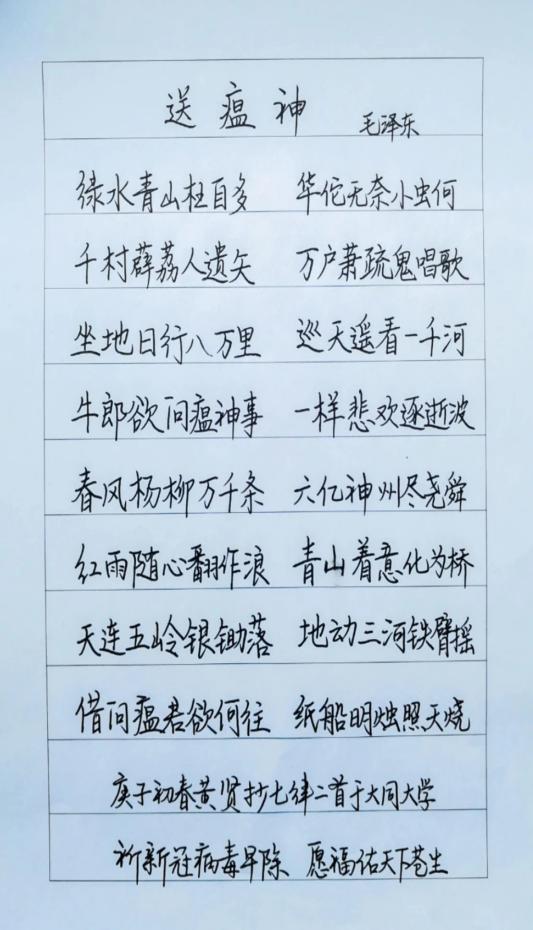 送瘟神 毛泽东
绿水青山枉自多 华佗无奈小虫何
千村薜荔人遗矢 万户萧疏鬼唱歌
坐地日行八万里 巡天遥看一千河
牛郎欲问瘟神事 一样悲欢逐逝波
春风杨柳万千条 六亿神州尽尧舜
红雨随心翻作浪 青山着意化为桥
天连五岭银锄落 地动三河铁臂摇
借问瘟君欲何往 纸船明烛照天烧
庚子初春黄贤抄七律二首于大同大学
祈新冠病毒早除 愿福佑天下苍生